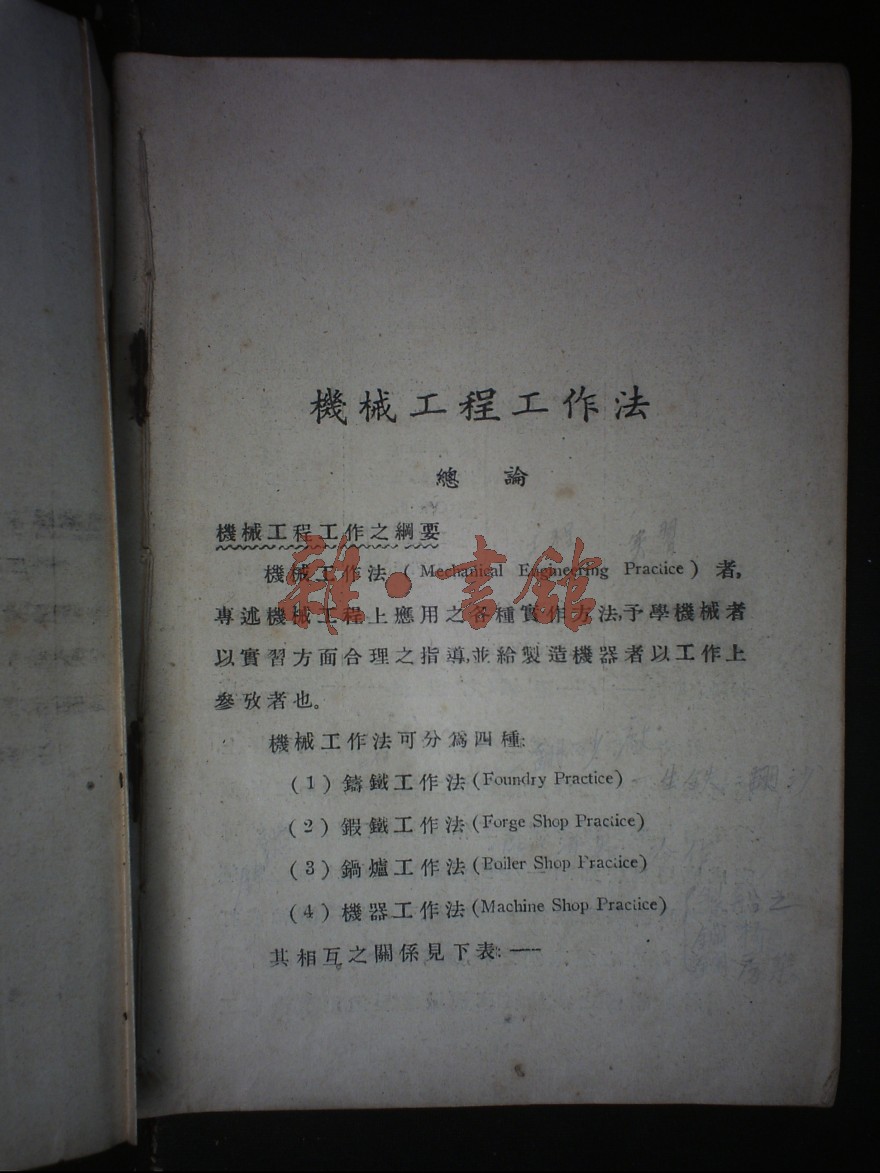 機械工程工作法
總論
機械工程工作之綱要
機械工作法(Mechanical Engineering Practice)者,
專述機械工程上應用之各種實作方法,予學機械者
以實習方面合理之指導,並給製造機器者以工作上
參攷者也。
機械工作法可分爲四種:
(1)鑄鐵工作法(Foundry Practice)
(2)鍜鐵工作法(Forge Shop Practice)
(3)鍋爐工作法(Boiler Shop Practice)
(4)機器工作法(Machine Shop Practice)
其相互之關係見下表:——
雜·書館
實習
生鉄